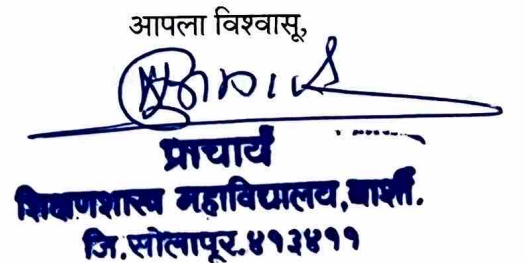 आपला विश्वासू,
प्राचार्य
शिक्षणशास्त्र महाविद्यालय,बार्शी.
जि.सोलापूर.४१३४११